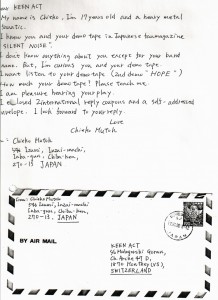 Dear KEEN ACT
My name is Chieko. I'm 19 years old and a heavy metal
fanatic.
I know you and your demo tape in Japanese tour magazine
"SILENT NOISE".
I don't know anything about you except for your band
name. But, I'm curious you and your demo tape.
I want listen to your demo-tape (2nd demo "HOPE")
How much your demo tape! Please teach me.
I am pleasure hearing your play.
I enclosed 2 international reply coupons and a self-addressed
envelope. I look forward to your reply.
Love
Chieko Mutoh
Chieko Mutoh
596 Izumi, Inzai-machi
Inba-gun, Chiba-ken,
270-13 JAPAN
From: Chieko Mutoh
596 Izumi, Inzai-machi
Inba-gun, Chiba-ken,
270-13 JAPAN
BY AIR MAIL
KEEN ACT
1870 Monthey (VS),
SWITZERLAND
JAPAN